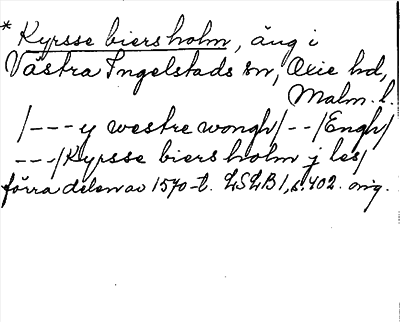 * Kyrsse biersholm, äng i
Västra Ingelstads sn, Oxie hd,
Malm. l.
/--- y westre wongh/--/Engh/
---/Kyrsse biersholm j les/
förra delen av 1570-t. LSLB 1, s. 402. orig.